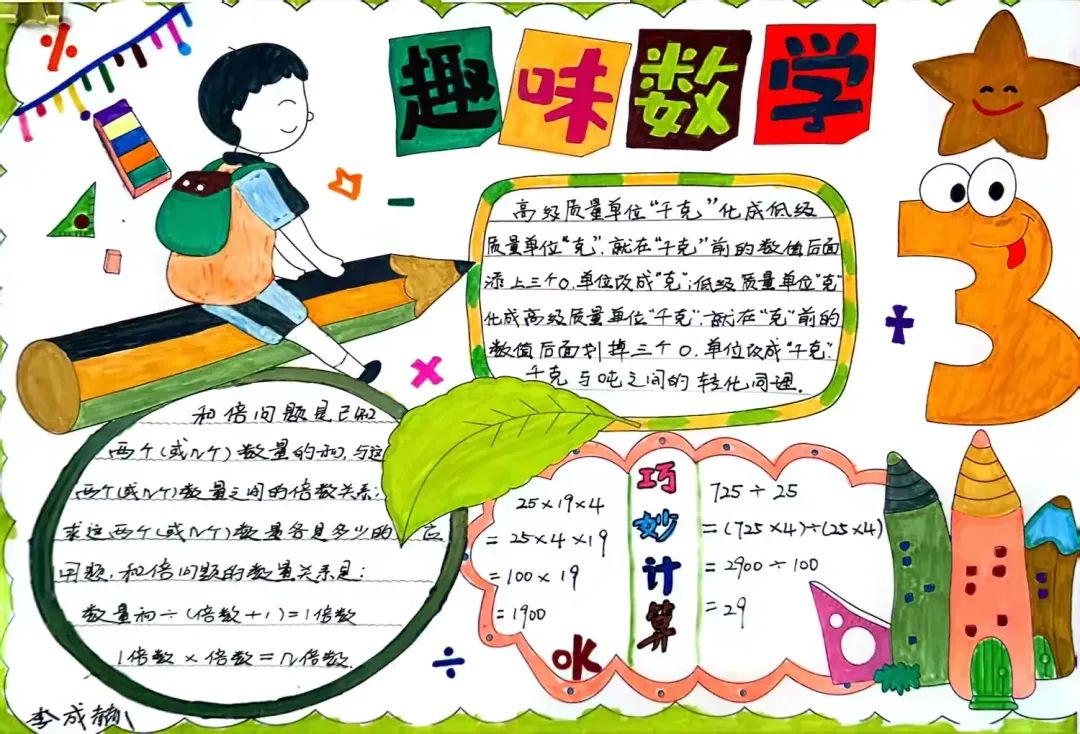 趣味数学
高级质量单位“千克”化成低级
质量单位“克”,就在“千克”前的数值后面
添上三个0,单位改成“克”;低级质量单位“克”
化成高级质量单位“千克”,就在“克”前的
数值后面划掉三个0,单位改成“千克”.
千克与吨之间的转化同理.
和倍问题是已知
两个(或几个)数量的和,与这
两个(或几个)数量之间的倍数关系;
求这两个(或几个)数量各是多少的应
用题,和倍问题的数量关系是:
数量和÷(倍数+1)=1倍数
1倍数×倍数=几倍数.
25×19×4
=25×4×19
=100×19
=1900
OK
巧妙计算
725÷25
=(725×4)÷(25×4)
=2900÷100
=29
3
李成